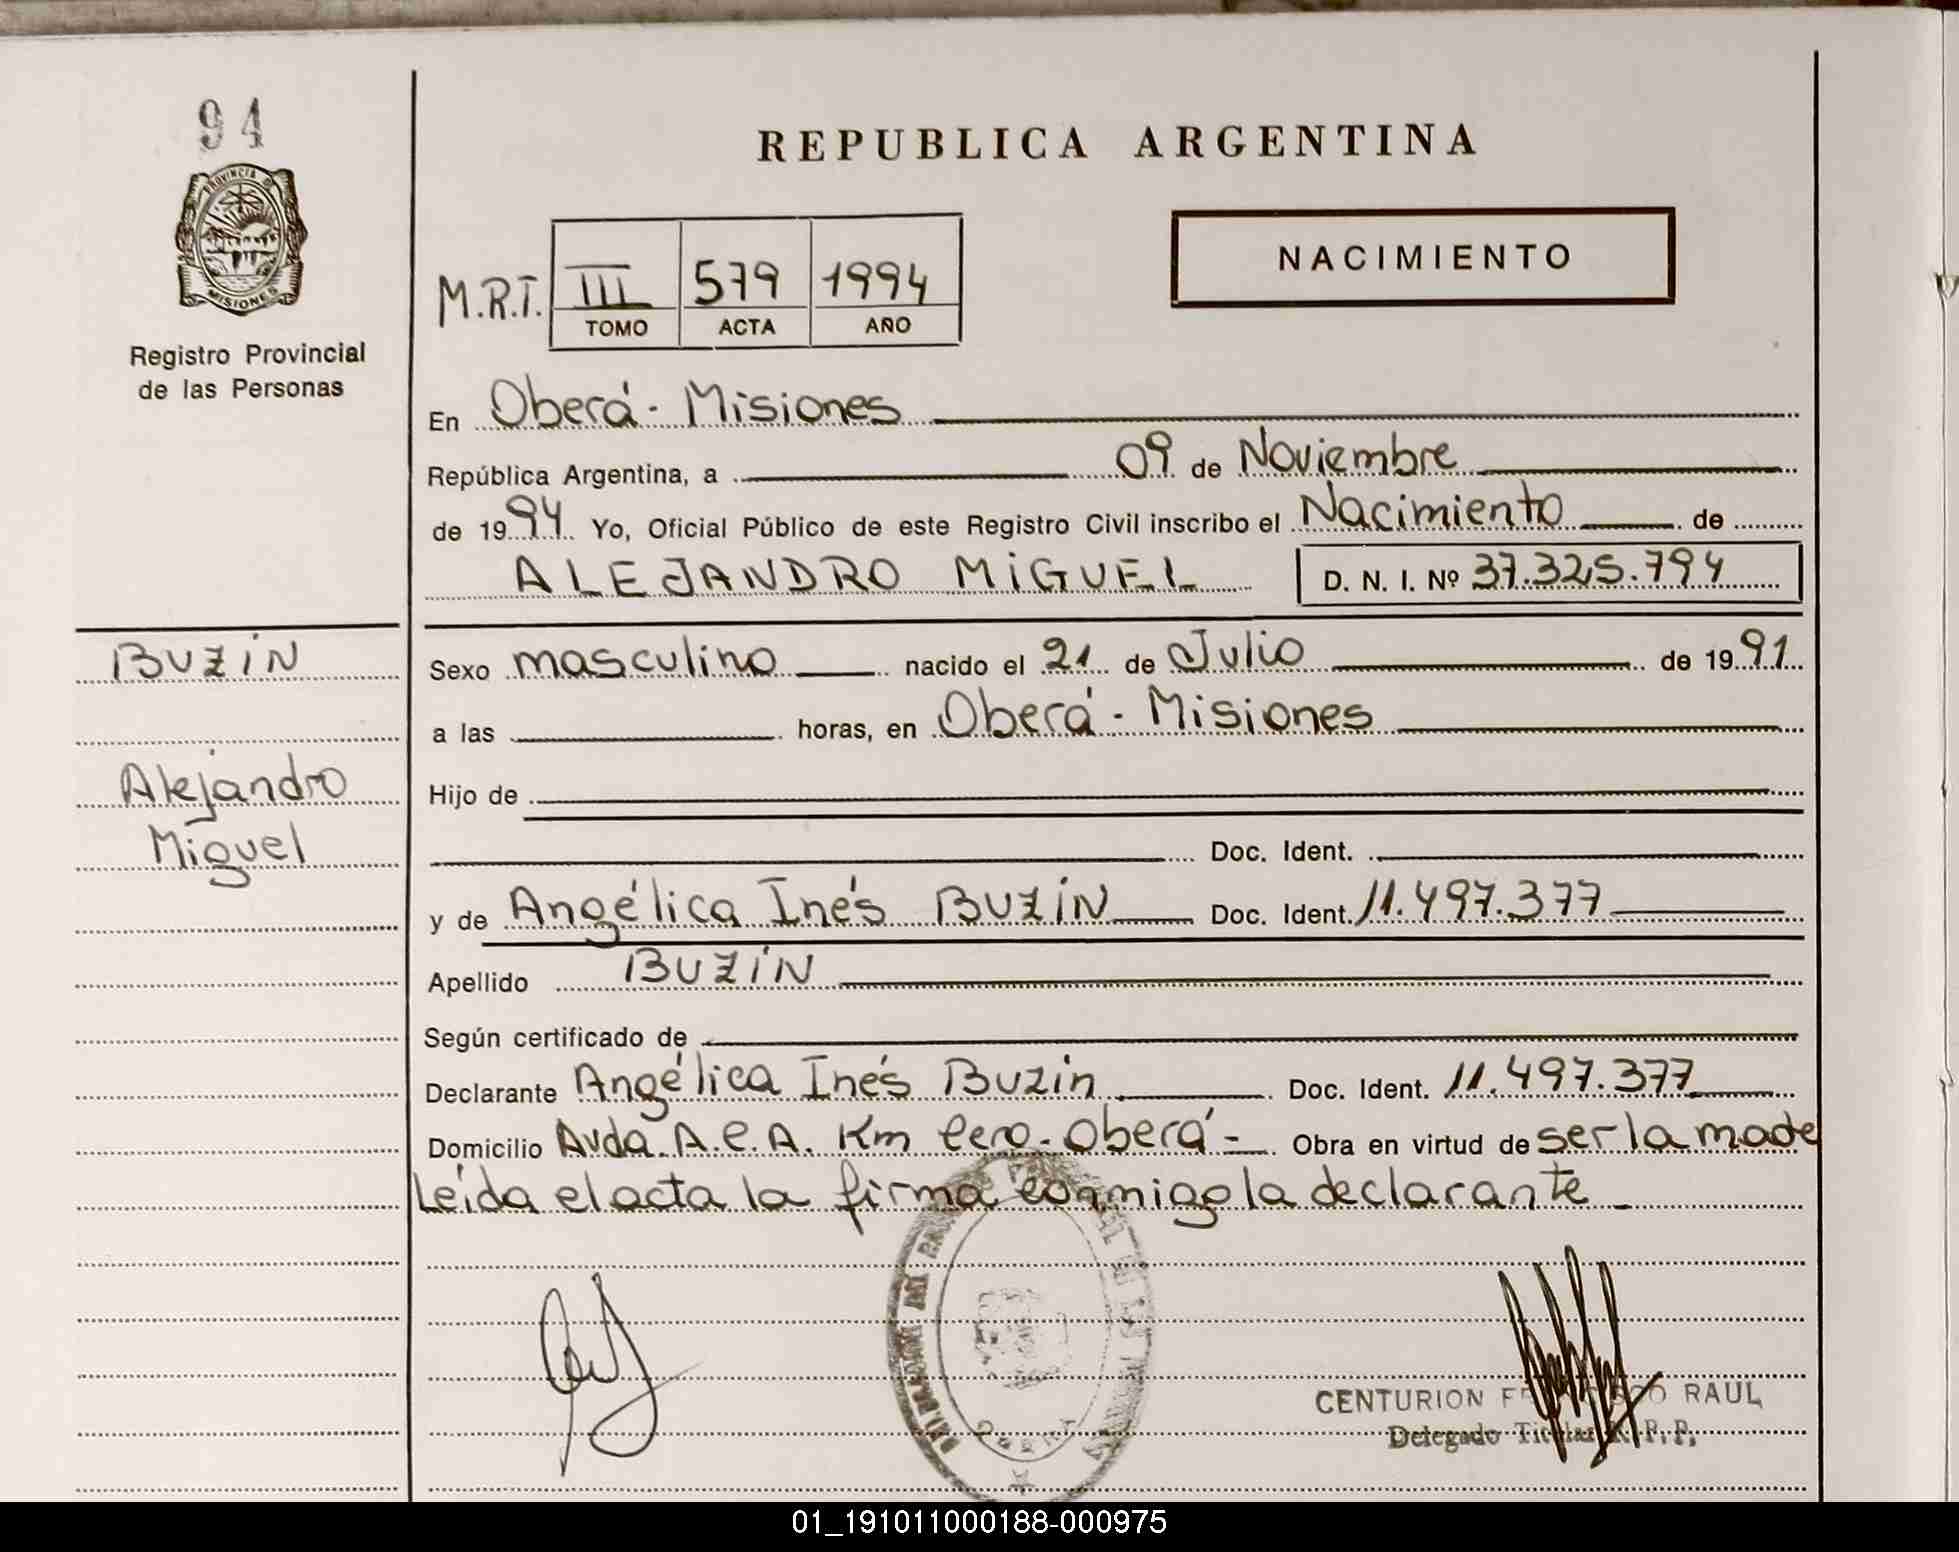 94
PROVINCIA DE
MISIONES
Registro Provincial
de las Personas
REPUBLICA ARGENTINA
NACIMIENTO
M.R.T. III 579 1994
TOMO ACTA AÑO
En Oberá - Misiones
República Argentina, a 09 de Noviembre
de 1994 Yo, Oficial Público de este Registro Civil inscribo el Nacimiento de
ALEJANDRO MIGUEL D. N. I. Nº 37.325.794
BUZIN
Alejandro
Miguel
Sexo masculino nacido el 21 de Julio de 1991
a las horas, en Oberá - Misiones
Hijo de
Doc. Ident.
y de Angélica Inés BUZIN Doc. Ident. 11.497.377
Apellido BUZIN
Según certificado de
Declarante Angélica Inés Buzin Doc. Ident. 11.497.377
Domicilio Avda. A.C.A. Km cero - Oberá - Obra en virtud de ser la madre
Leída el acta la firma conmigo la declarante
CENTURION RAUL
Delegado Titular R. P. P.
01_191011000188-000975